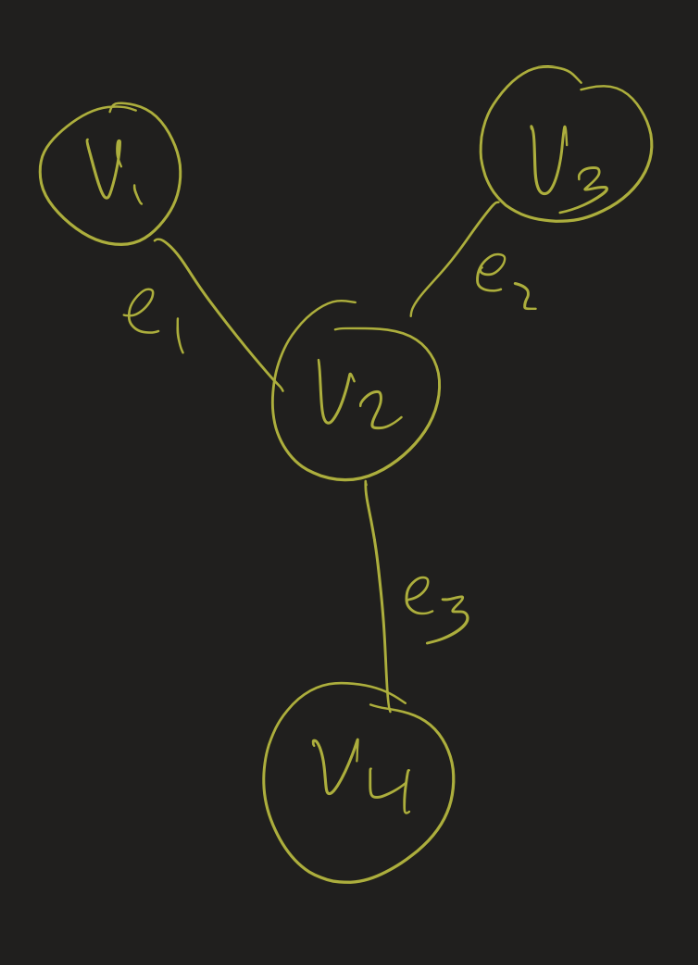 V₁
V₃
e₁
e₂
V₂
e₃
V₄